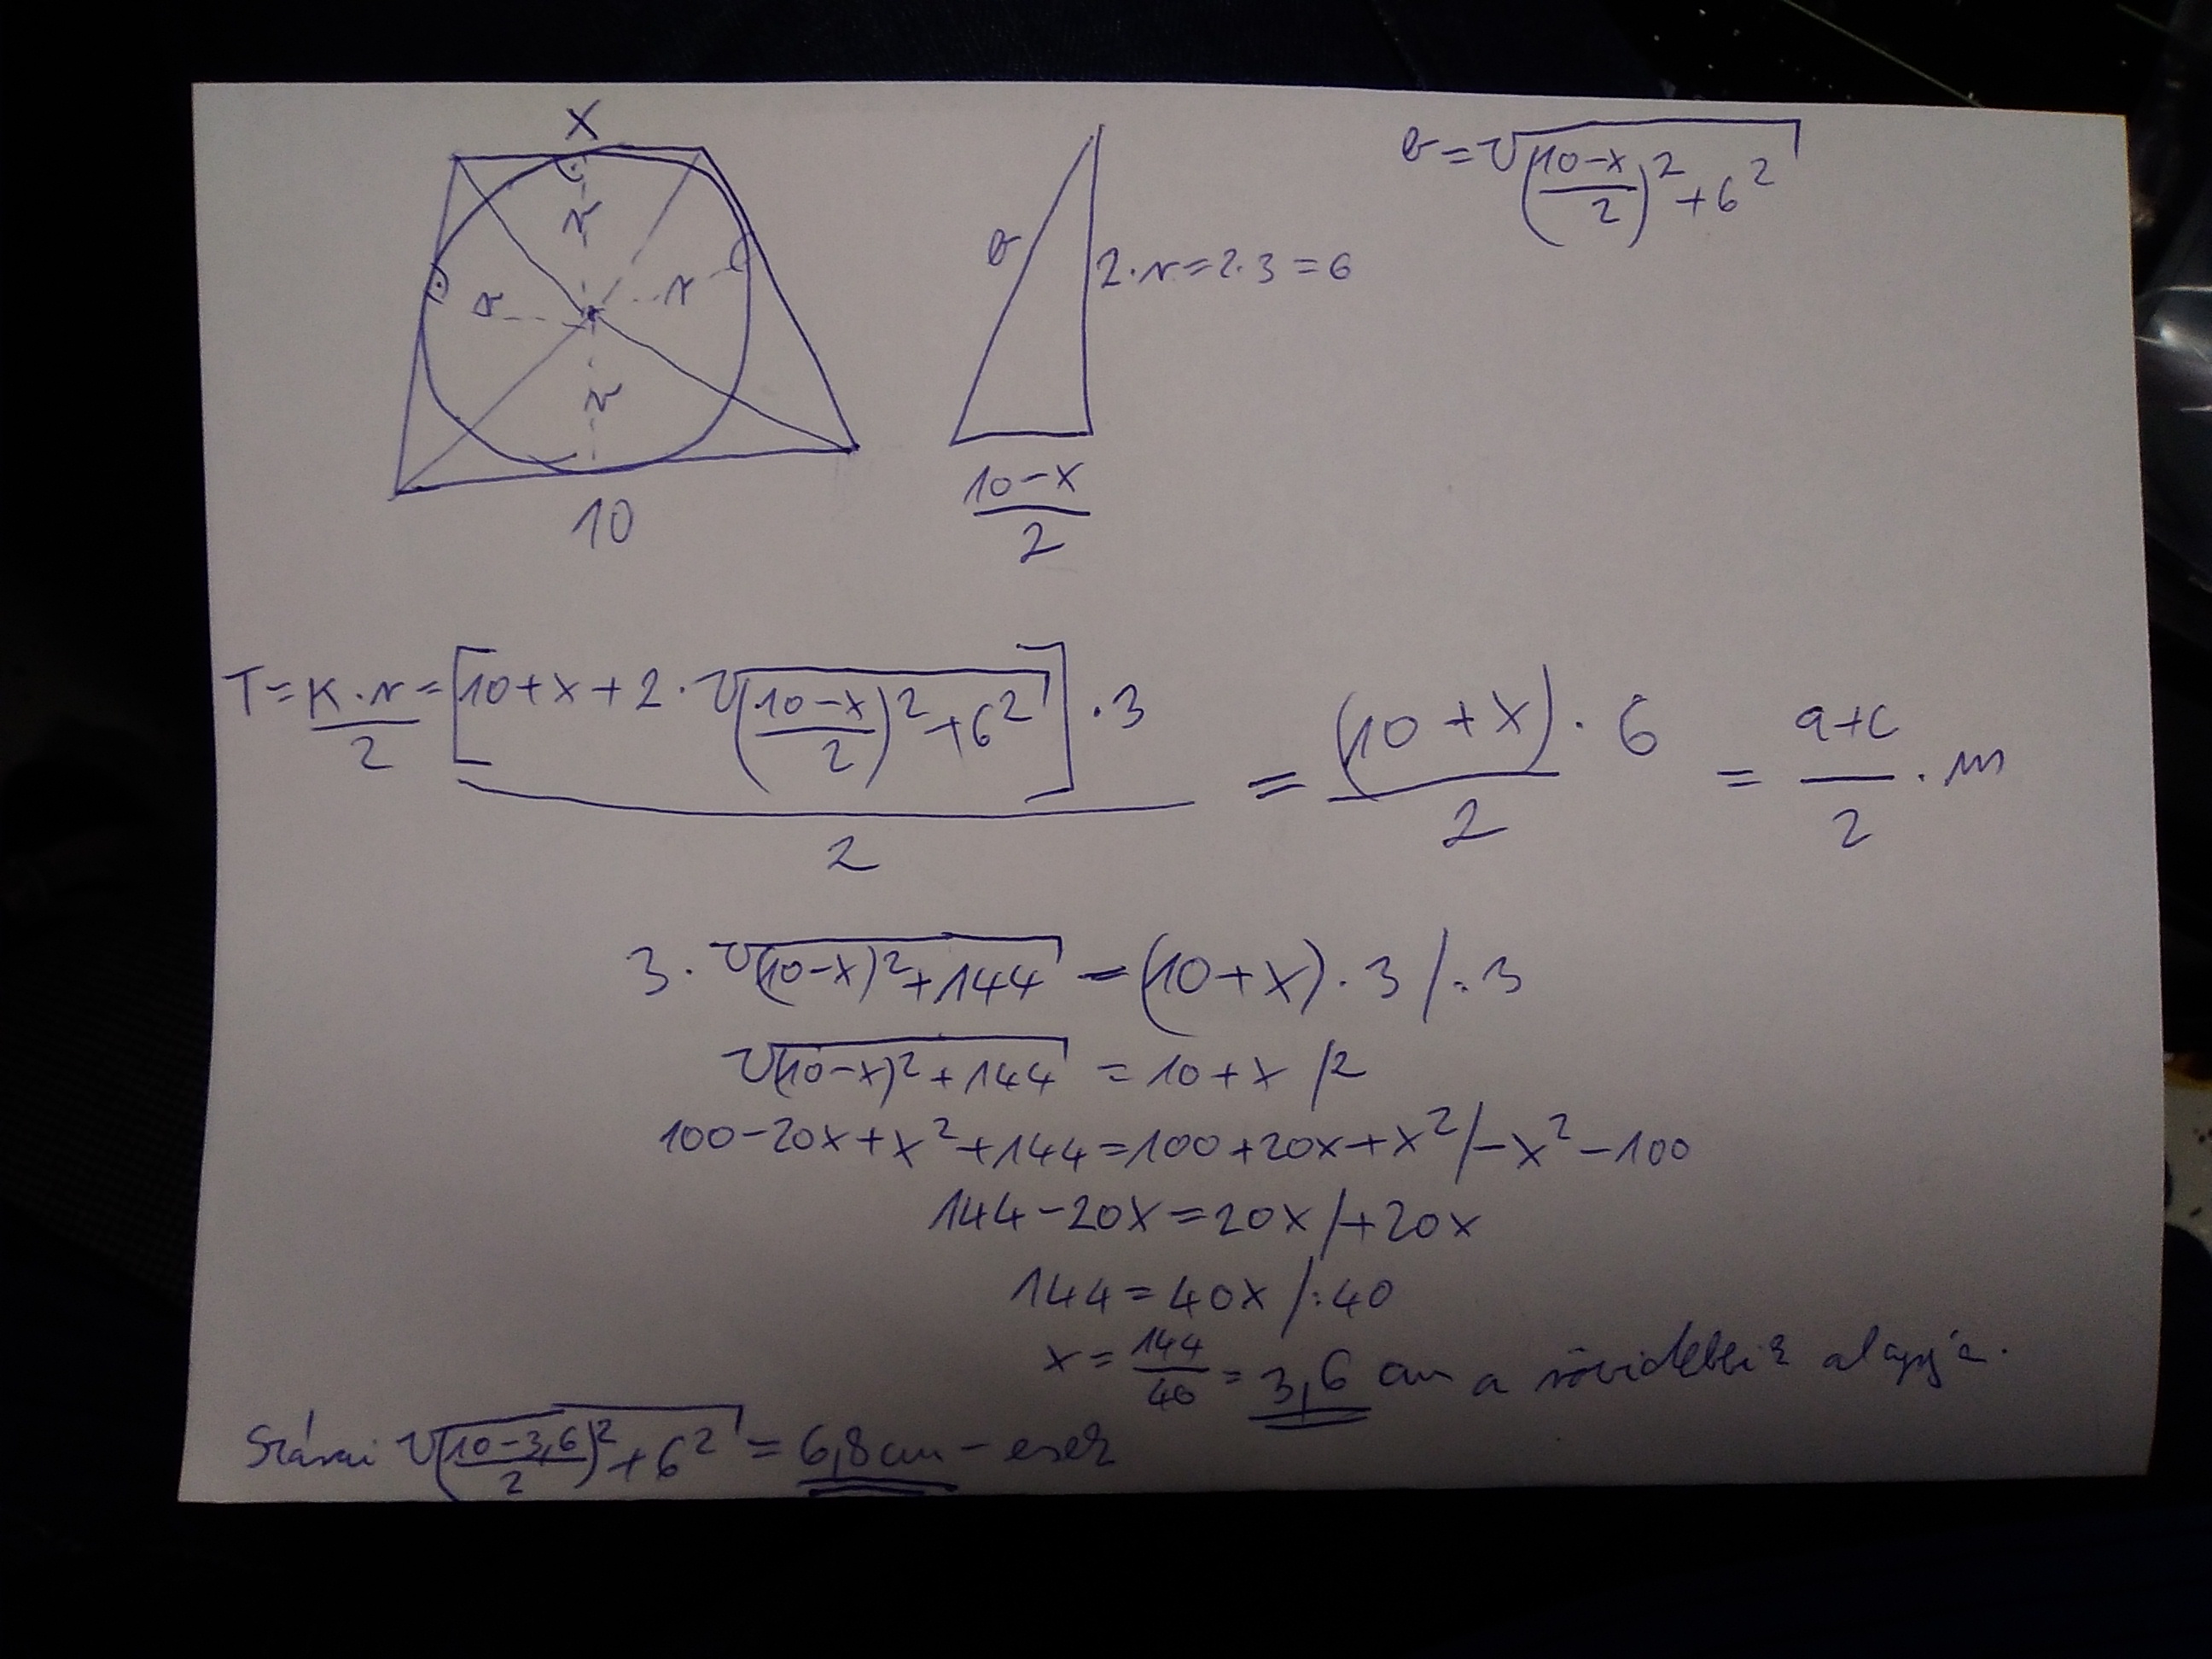 x
r
r
r
r
10
b
2·r=2·3=6
10-x
2
b=√((10-x)/2)²+6²
T=K·r/2=[10+x+2·√((10-x)/2)²+6²]·3/2=(10+x)/2·6=a+c/2·m
3·√(10-x)²+144=(10+x)·3/:3
√(10-x)²+144=10+x/²
100-20x+x²+144=100+20x+x²/-x²-100
144-20x=20x/+20x
144=40x/:40
x=144/40=3,6 cm a rövidebbik alapja.
Szárai √((10-3,6)/2)²+6²=6,8cm-esek